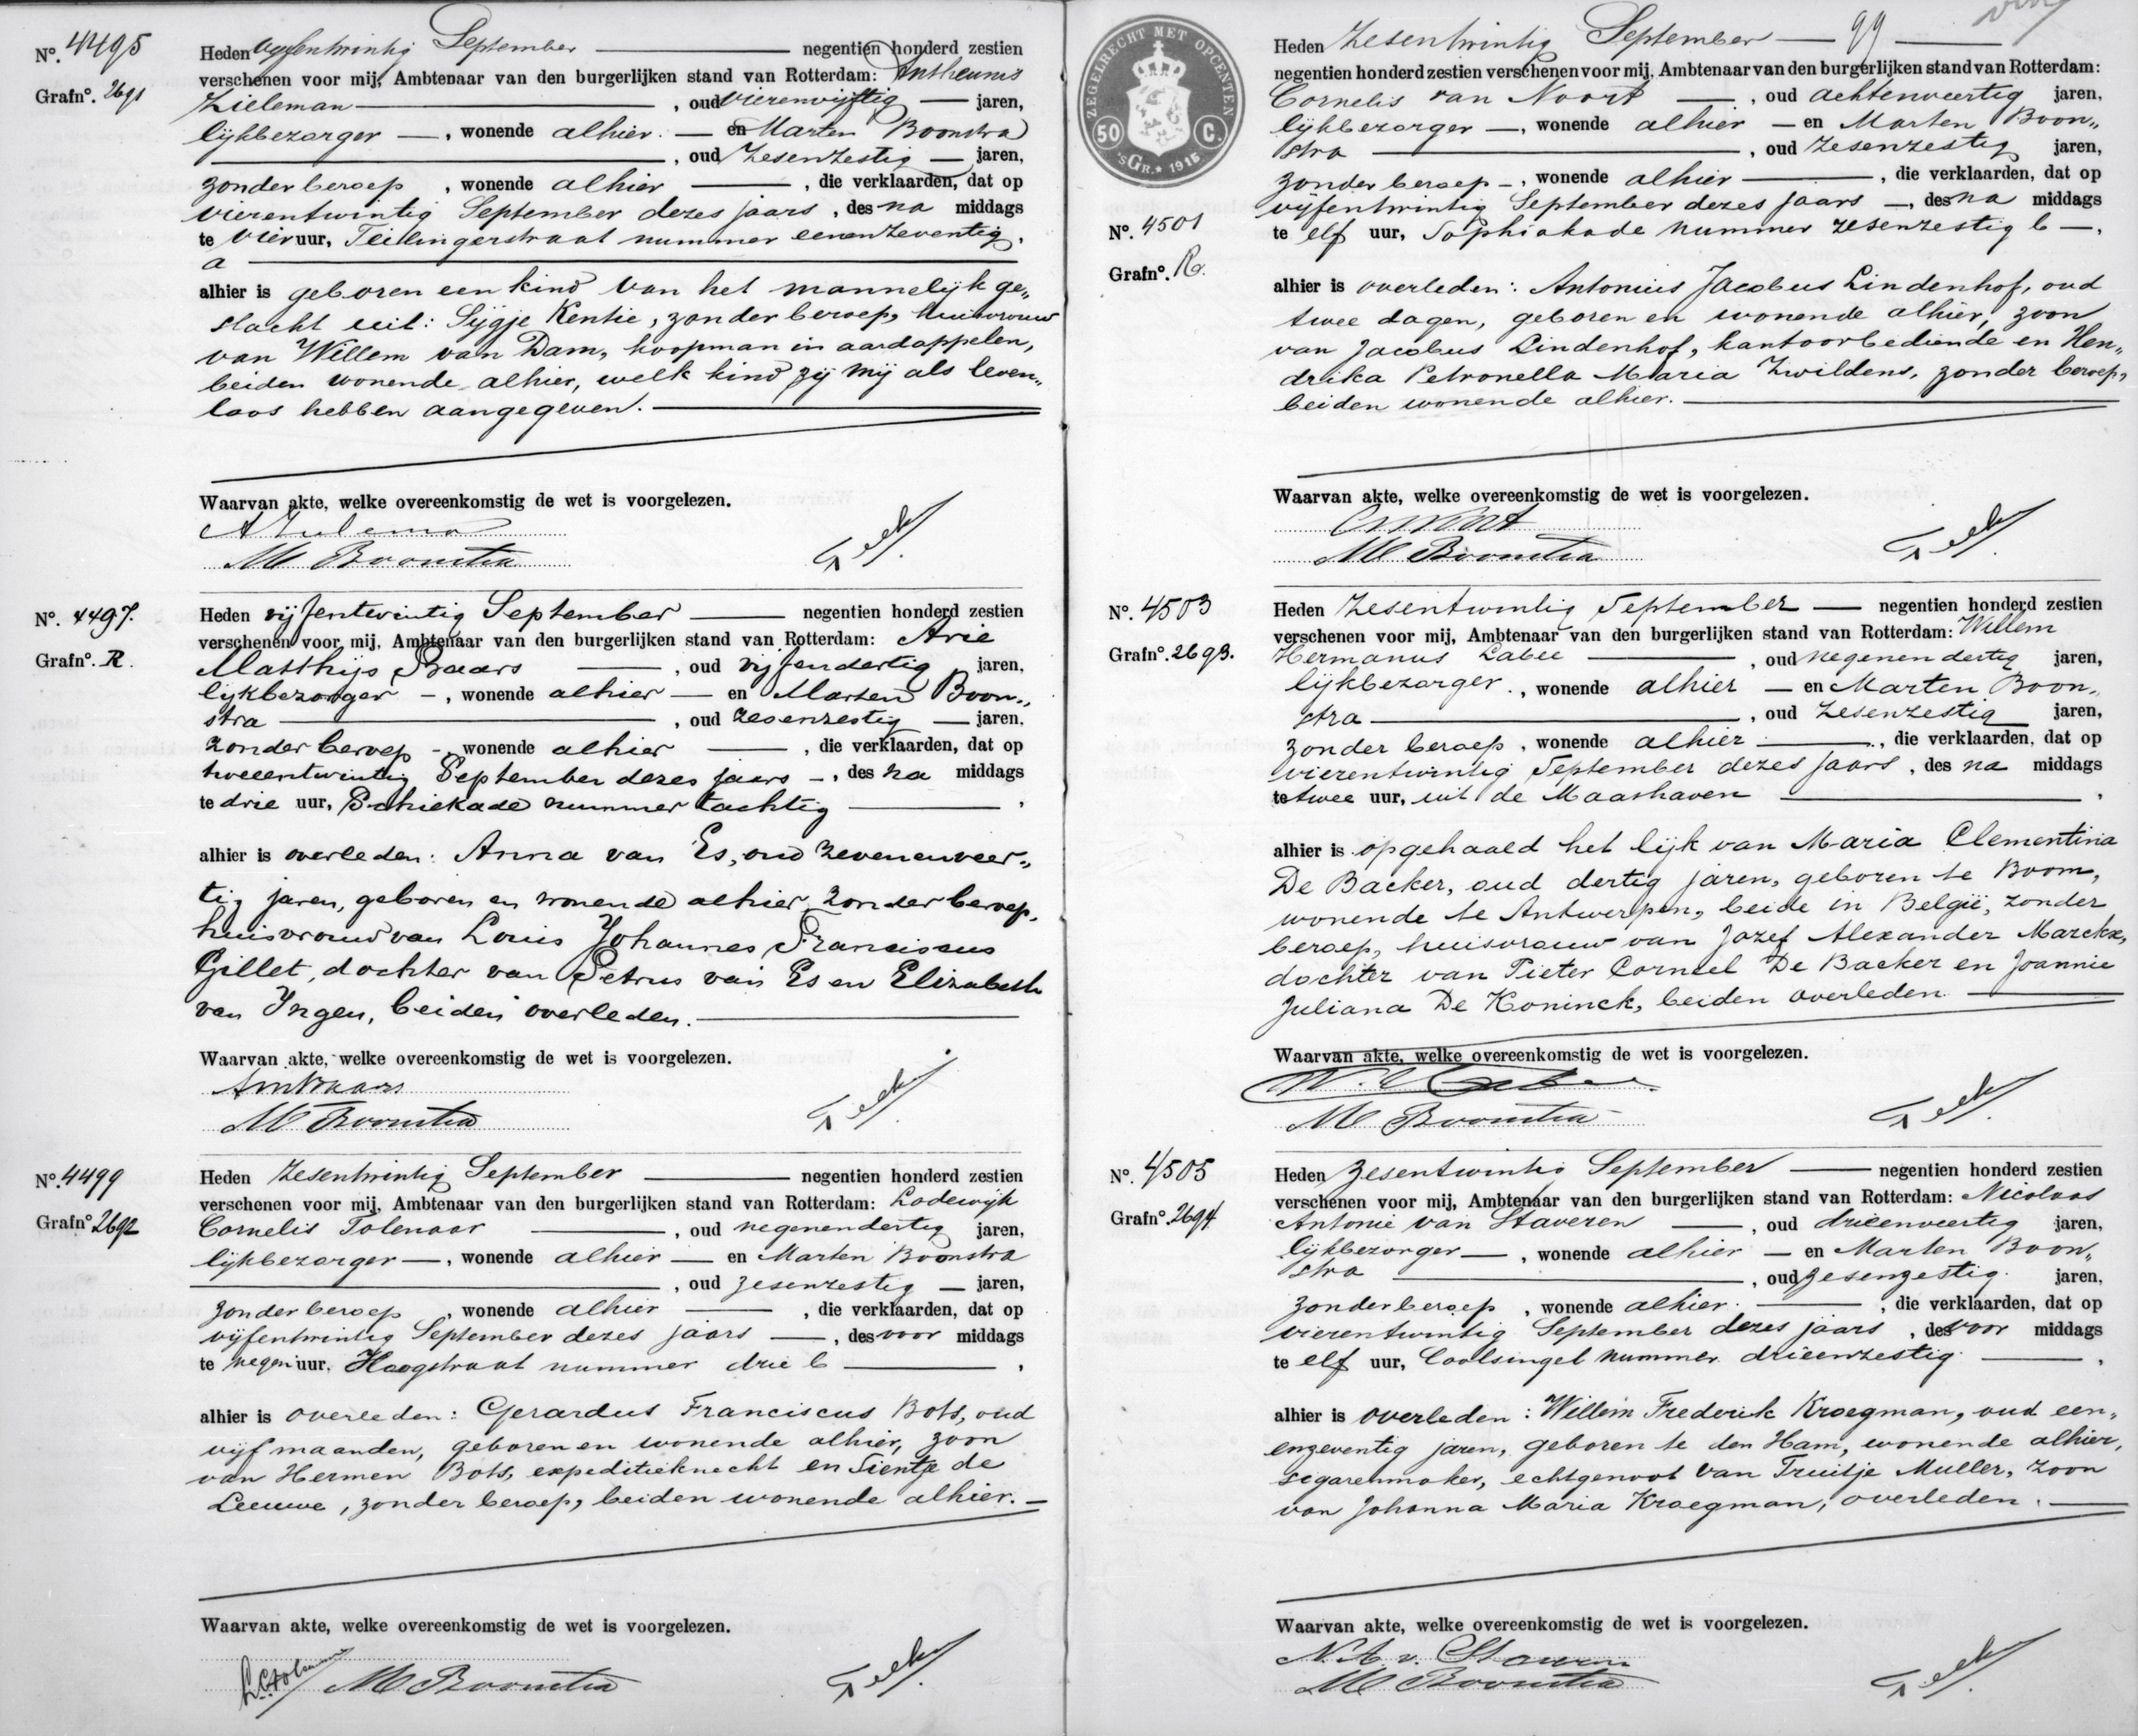 No. 4495
Grafno. 2691
Heden vijfentwintig September negentien honderd zestien
verschenen voor mij, Ambtenaar van den burgerlijken stand van Rotterdam: Antheunis
Zieleman, oud vierenvijftig jaren,
lijkbezorger, wonende alhier en Marten Boonstra
, oud zesenzestig jaren,
zonder beroep, wonende alhier, die verklaarden, dat op
vierentwintig September dezes jaars, des na middags
te vier uur, Teilingerstraat nummer eenenzeventig
a
alhier is geboren een kind van het mannelijk ge„
slacht uit: Sijgje Kentie, zonder beroep, huisvrouw
van Willem van Dam, koopman in aardappelen,
beiden wonende alhier, welk kind zij mij als leven„
loos hebben aangegeven.
Waarvan akte, welke overeenkomstig de wet is voorgelezen.
M Boonstra
No. 4497.
Grafno. R.
Heden vijfentwintig September negentien honderd zestien
verschenen voor mij, Ambtenaar van den burgerlijken stand van Rotterdam: Arie
Matthijs Baars, oud vijfendertig jaren,
lijkbezorger, wonende alhier en Marten Boon„
stra, oud zesenzestig jaren,
zonder beroep, wonende alhier, die verklaarden, dat op
tweeentwintig September dezes jaars, des na middags
te drie uur, Schiekade nummer tachtig,
alhier is overleden: Anna van Es, oud zevenenveer„
tig jaren, geboren en wonende alhier, zonder beroep,
huisvrouw van Louis Johannes Franciscus
Gillet, dochter van Petrus van Es en Elizabeth
van Yngen, beiden overleden.
Waarvan akte, welke overeenkomstig de wet is voorgelezen.
AMBaars
M Boonstra
No. 4499
Grafno 2692
Heden zesentwintig September negentien honderd zestien
verschenen voor mij, Ambtenaar van den burgerlijken stand van Rotterdam: Lodewijk
Cornelis Tolenaar, oud negenendertig jaren,
lijkbezorger, wonende alhier en Marten Boonstra
, oud zesenzestig jaren,
zonder beroep, wonende alhier, die verklaarden, dat op
vijfentwintig September dezes jaars, des voor middags
te negen uur, Hoogstraat nummer drie b,
alhier is overleden: Gerardus Franciscus Bots, oud
vijf maanden, geboren en wonende alhier, zoon
van Hermen Bots, expeditieknecht en Sientje de
Leeuwe, zonder beroep, beiden wonende alhier.
Waarvan akte, welke overeenkomstig de wet is voorgelezen.
M Boonstra
ZEGELRECHT MET OPCENTEN
50 C.
'sGr. 1915
No. 4501
Grafno. R.
Heden zesentwintig September 99
negentien honderd zestien verschenen voor mij, Ambtenaar van den burgerlijken stand van Rotterdam:
Cornelis van Noort, oud achtenveertig jaren,
lijkbezorger, wonende alhier en Marten Boon„
stra, oud zesenzestig jaren,
zonder beroep, wonende alhier, die verklaarden, dat op
vijfentwintig September dezes jaars, des na middags
te elf uur, Sophiakade nummer zesenzestig b,
alhier is overleden: Antonius Jacobus Lindenhof, oud
twee dagen, geboren en wonende alhier, zoon
van Jacobus Lindenhof, kantoorbediende en Hen„
drika Petronella Maria Zwildens, zonder beroep,
beiden wonende alhier.
Waarvan akte, welke overeenkomstig de wet is voorgelezen.
M Boonstra
No. 4503
Grafno. 2693.
Heden zesentwintig September negentien honderd zestien
verschenen voor mij, Ambtenaar van den burgerlijken stand van Rotterdam: Willem
Hermanus Labee, oud negenendertig jaren,
lijkbezorger, wonende alhier en Marten Boon„
stra, oud zesenzestig jaren,
zonder beroep, wonende alhier, die verklaarden, dat op
vierentwintig September dezes jaars, des na middags
te twee uur, uit de Maashaven,
alhier is opgehaald het lijk van Maria Clementina
De Backer, oud dertig jaren, geboren te Boom,
wonende te Antwerpen, beide in België, zonder
beroep, huisvrouw van Jozef Alexander Marckx,
dochter van Pieter Corneel De Backer en Joannie
Juliana De Koninck, beiden overleden
Waarvan akte, welke overeenkomstig de wet is voorgelezen.
M Boonstra
No. 4505
Grafno. 2694
Heden zesentwintig September negentien honderd zestien
verschenen voor mij, Ambtenaar van den burgerlijken stand van Rotterdam: Nicolaas
Antonie van Staveren, oud drieenveertig jaren,
lijkbezorger, wonende alhier en Marten Boon„
stra, oud zesenzestig jaren,
zonder beroep, wonende alhier, die verklaarden, dat op
vierentwintig September dezes jaars, des voor middags
te elf uur, Coolsingel nummer drieenzestig,
alhier is overleden: Willem Frederik Kroegman, oud een„
enzeventig jaren, geboren te den Ham, wonende alhier,
sigarenmaker, echtgenoot van Truitje Muller, zoon
van Johanna Maria Kroegman, overleden.
Waarvan akte, welke overeenkomstig de wet is voorgelezen.
N.A. v. Staveren
M Boonstra